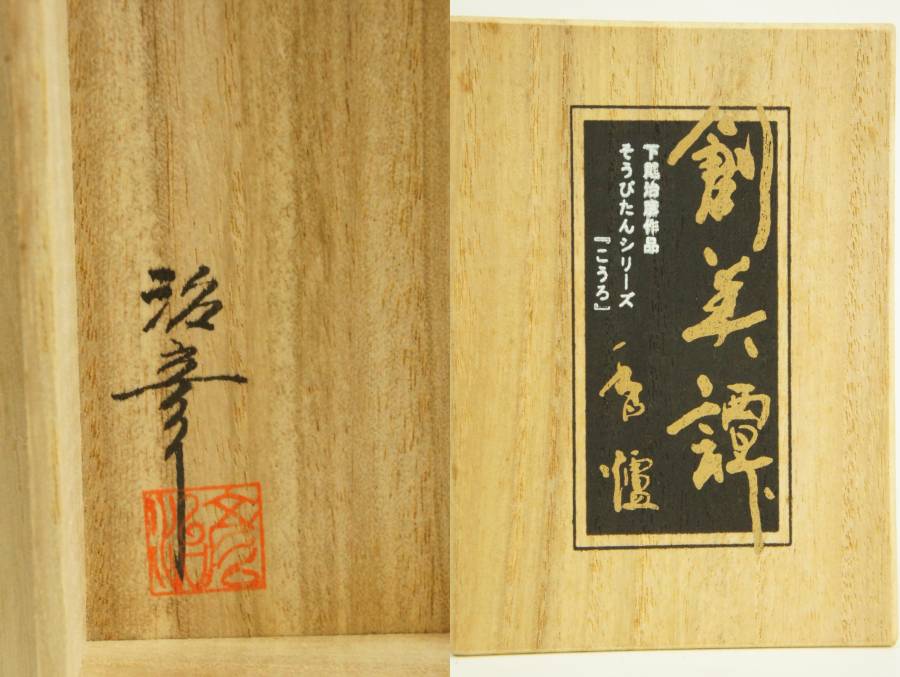 治彦
創美譚
下尾治彦作品
そうびたんシリーズ
『こうろ』
香爐